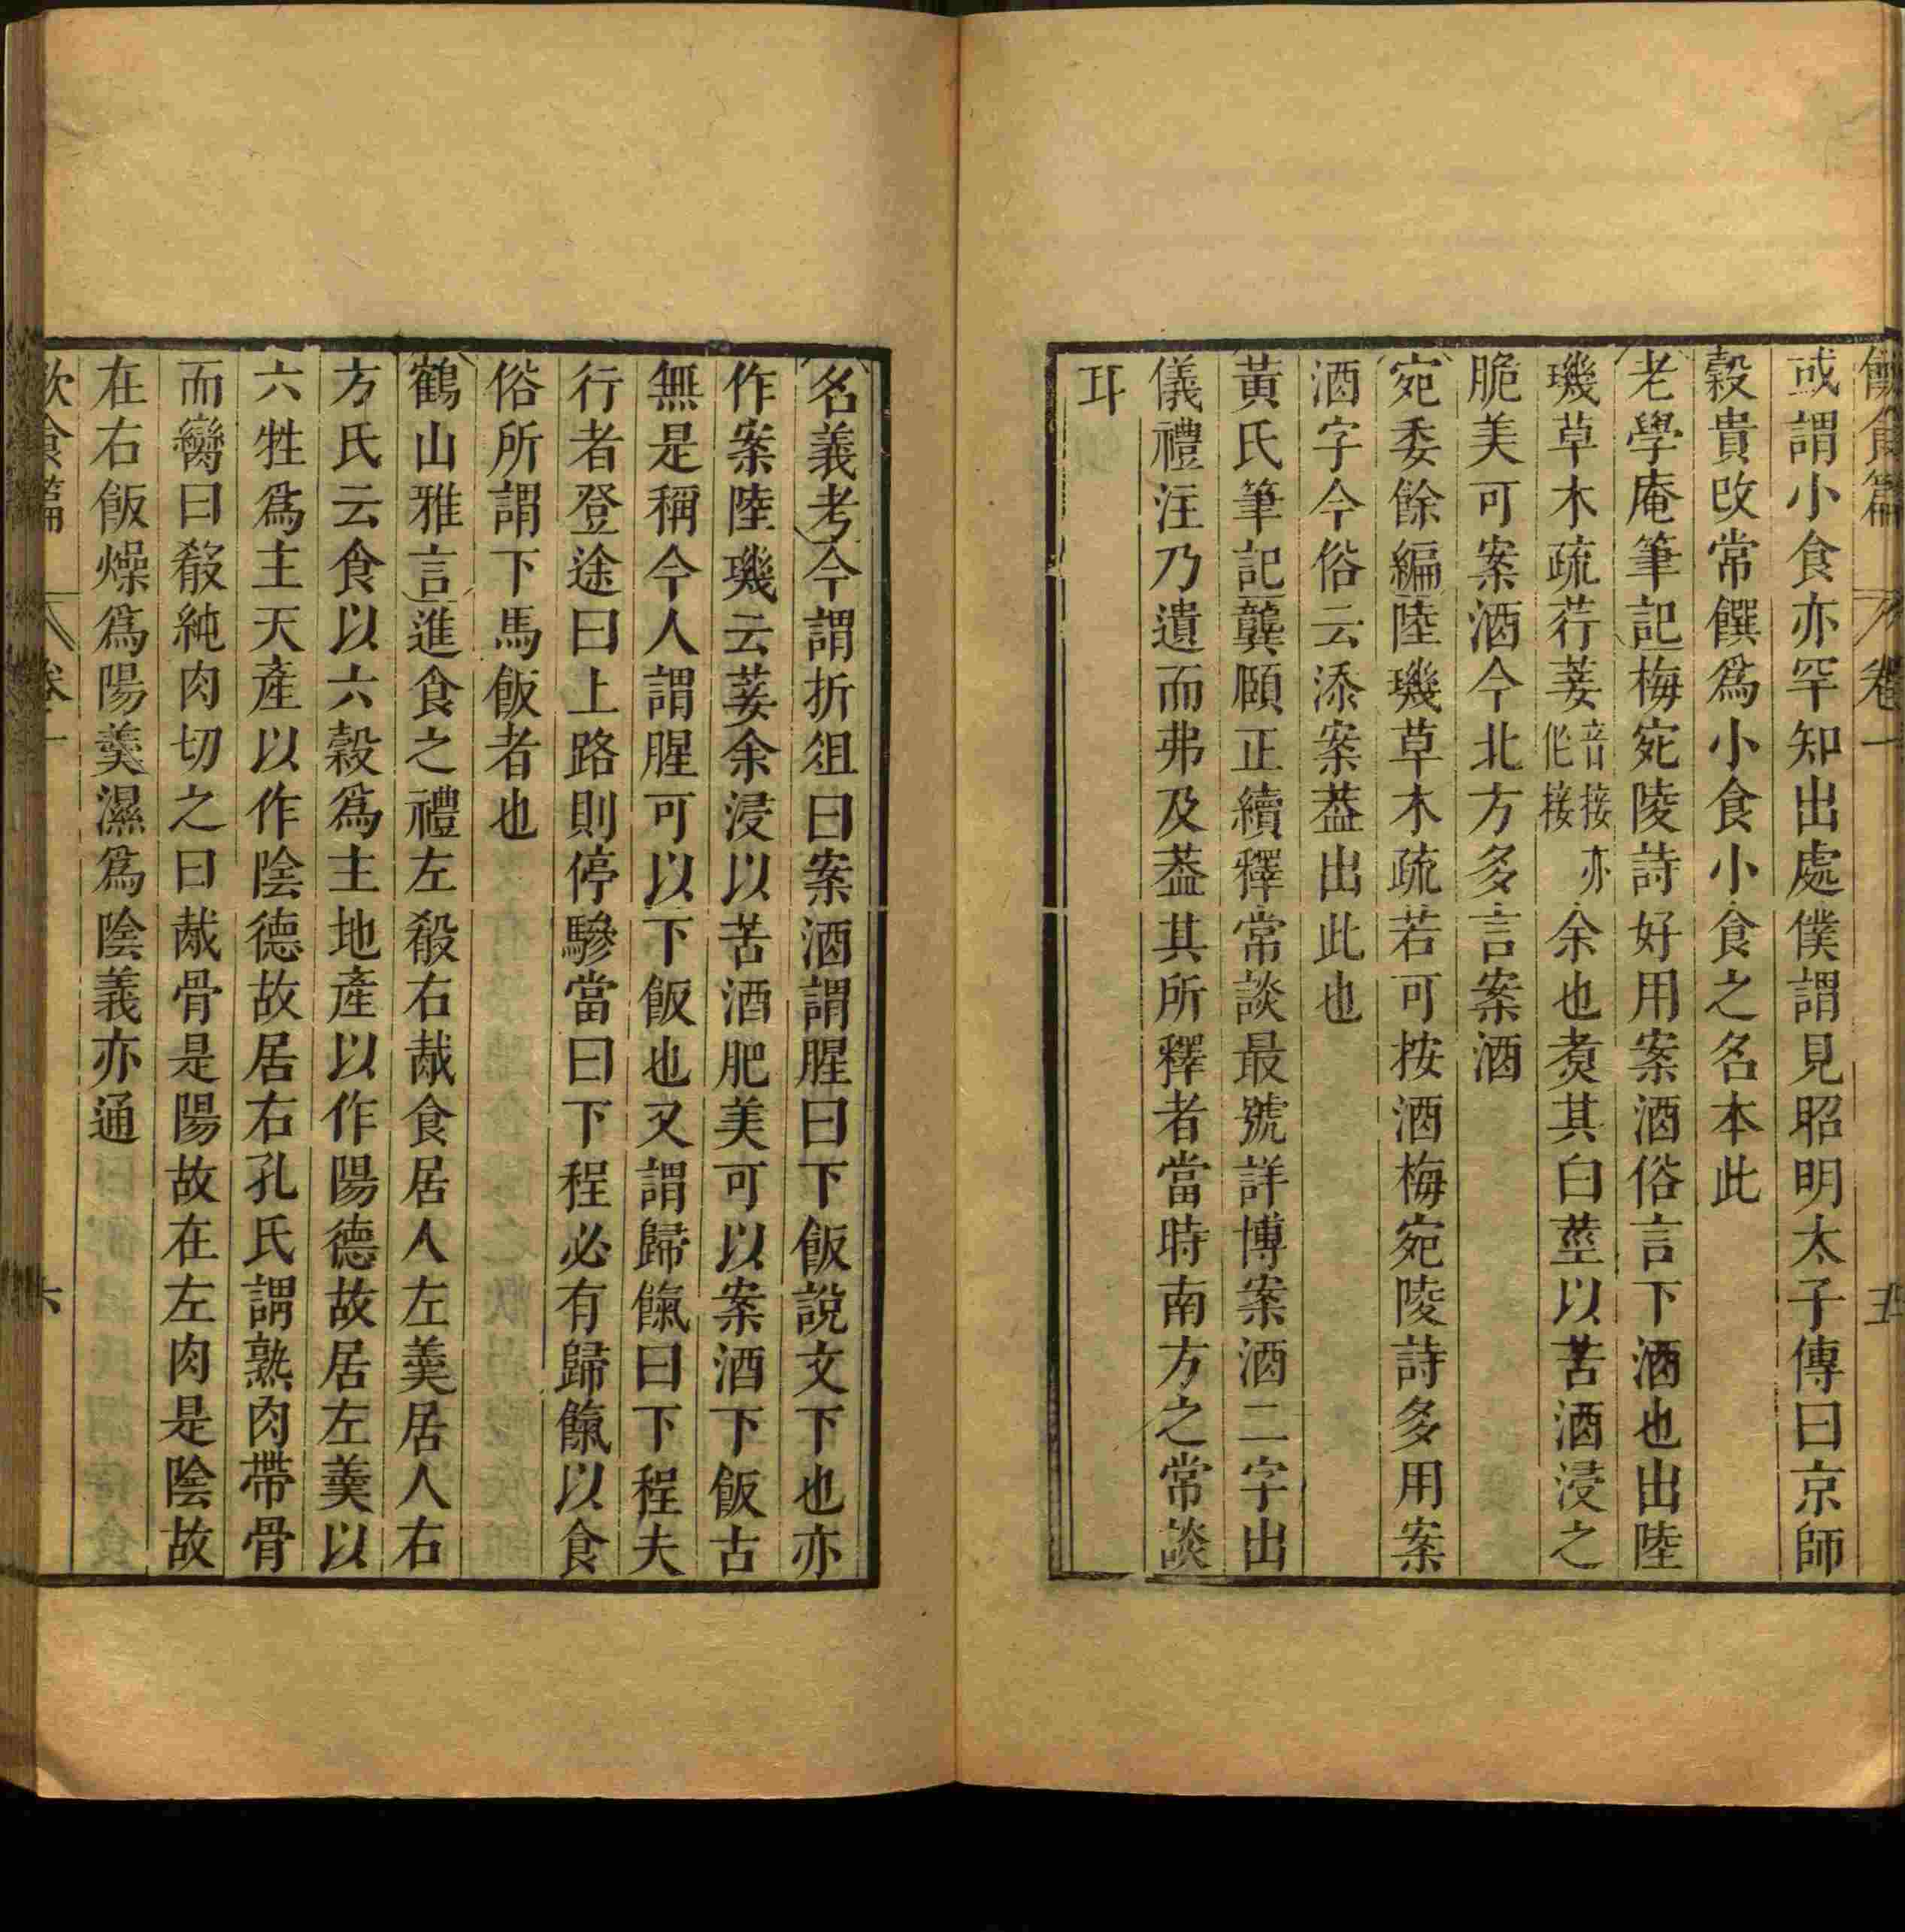 飲食篇 卷一 五
或謂小食亦罕知出處僕謂見昭明太子傳曰京師
穀貴改常饌爲小食小食之名本此
老學庵筆記梅宛陵詩好用案酒俗言下酒也出陸
璣草木疏荇萎音接亦作接余也煑其白莖以苦酒浸之
脆美可案酒今北方多言案酒
宛委餘編陸璣草木疏若可按酒梅宛陵詩多用案
酒字今俗云添案葢出此也
黃氏筆記龔頤正續釋常談最號詳博案酒二字出
儀禮注乃遺而弗及葢其所釋者當時南方之常談
耳
名義考今謂折俎曰案酒謂腥曰下飯說文下也亦
作案陸璣云萎余浸以苦酒肥美可以案酒下飯古
無是稱今人謂腥可以下飯也又謂歸餼曰下程夫
行者登途曰上路則停驂當曰下程必有歸餼以食
俗所謂下馬飯者也
鶴山雅言進食之禮左殽右胾食居人左羹居人右
方氏云食以六穀爲主地產以作陽德故居左羹以
六牲爲主天產以作陰德故居右孔氏謂熟肉帶骨
而臠曰殽純肉切之曰胾骨是陽故在左肉是陰故
在右飯燥爲陽羹濕爲陰義亦通
飲食篇 卷一 六